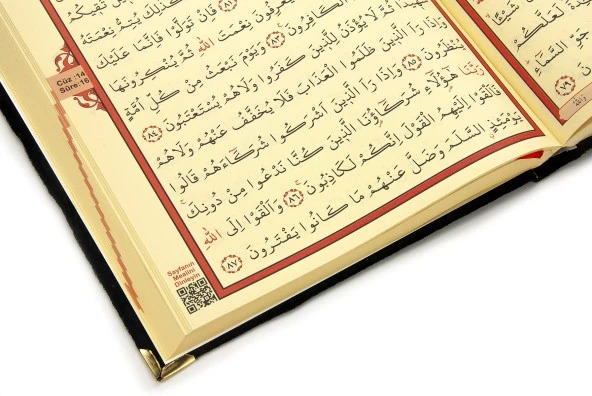 تَقِيكُمْ
كَذٰلِكَ يُتِمُّ نِعْمَتَهُ
﴿٨١﴾ فَاِنْ تَوَلَّوْا فَاِنَّمَا عَلَيْكَ
يَعْرِفُونَ نِعْمَتَ اللّٰهِ ثُمَّ يُنْكِرُونَهَا
الْكَافِرُونَ ﴿٨٣﴾ وَيَوْمَ نَبْعَثُ مِنْ كُلِّ اُمَّةٍ
شَهِيدًا ثُمَّ لَا يُؤْذَنُ لِلَّذِينَ كَفَرُوا وَلَاهُمْ يُسْتَعْتَبُونَ ﴿٨٤﴾
وَاِذَا رَاَ الَّذِينَ ظَلَمُوا الْعَذَابَ فَلَا يُخَفَّفُ عَنْهُمْ وَلَاهُمْ
يُنْظَرُونَ ﴿٨٥﴾ وَاِذَا رَاَ الَّذِينَ اَشْرَكُوا شُرَكَٓاءَهُمْ قَالُوا
رَبَّنَا هٰٓؤُلَٓاءِ شُرَكَٓاؤُنَا الَّذِينَ كُنَّا نَدْعُوا مِنْ دُونِكَ
فَاَلْقَوْا اِلَيْهِمُ الْقَوْلَ اِنَّكُمْ لَكَاذِبُونَ ﴿٨٦﴾ وَاَلْقَوْا اِلَى اللّٰهِ
يَوْمَئِذٍ السَّلَمَ وَضَلَّ عَنْهُمْ مَا كَانُوا يَفْتَرُونَ ﴿٨٧﴾
Cüz :14
Sûre:16
Sayfanın
Mealini
Dinleyin
شَيْئًا
لَعَلَّكُمْ
جَوِّ السَّمَٓاءِ
﴿٧٩﴾
وَاللّٰهُ